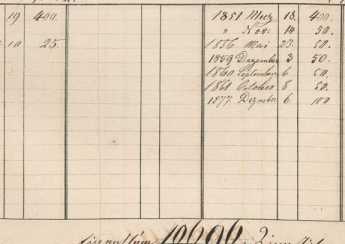 19 400. 1851 März 18. 400.
" Nov. 14. 50.
10 25. 1856 Mai 23. 50.
1859 Dezember 3 50.
1860 September 6 50.
1868 October 8 50.
1877 Dezember 6 100